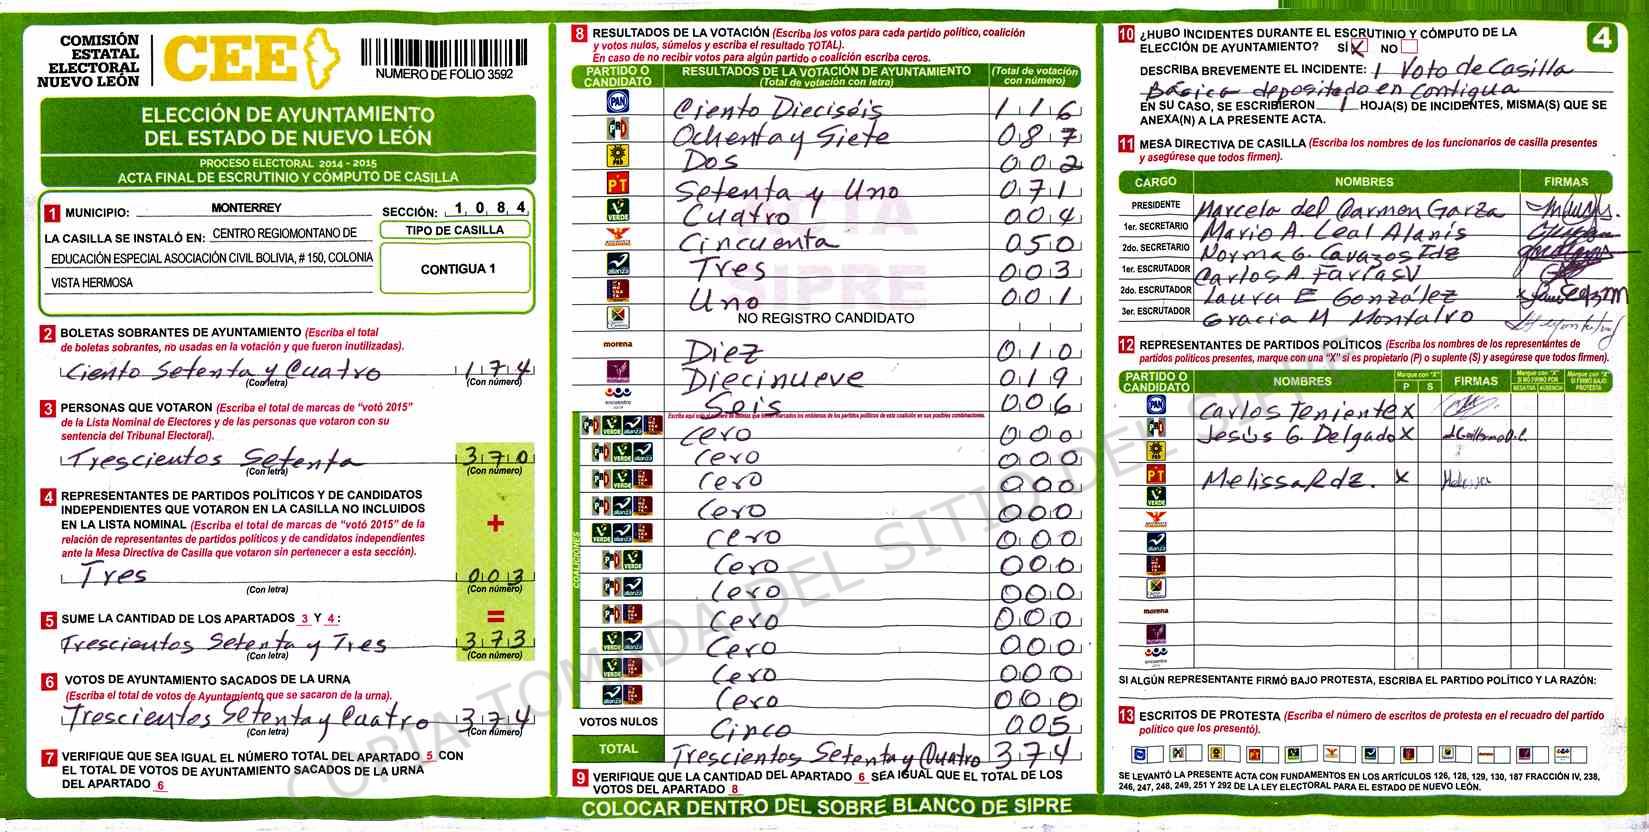 COMISIÓN
ESTATAL
ELECTORAL
NUEVO LEÓN
CEE
NUMERO DE FOLIO 3592
ELECCIÓN DE AYUNTAMIENTO
DEL ESTADO DE NUEVO LEÓN
PROCESO ELECTORAL 2014 - 2015
ACTA FINAL DE ESCRUTINIO Y CÓMPUTO DE CASILLA
1 MUNICIPIO: MONTERREY SECCIÓN: 1 0 8 4
LA CASILLA SE INSTALÓ EN: CENTRO REGIOMONTANO DE
EDUCACIÓN ESPECIAL ASOCIACIÓN CIVIL BOLIVIA, # 150, COLONIA
VISTA HERMOSA
TIPO DE CASILLA
CONTIGUA 1
2 BOLETAS SOBRANTES DE AYUNTAMIENTO (Escriba el total
de boletas sobrantes, no usadas en la votación y que fueron inutilizadas).
Ciento Setenta y Cuatro 1 7 4
(Con letra) (Con número)
3 PERSONAS QUE VOTARON (Escriba el total de marcas de "votó 2015"
de la Lista Nominal de Electores y de las personas que votaron con su
sentencia del Tribunal Electoral).
Trescientos Setenta 3 7 0
(Con letra) (Con número)
4 REPRESENTANTES DE PARTIDOS POLÍTICOS Y DE CANDIDATOS
INDEPENDIENTES QUE VOTARON EN LA CASILLA NO INCLUIDOS
EN LA LISTA NOMINAL (Escriba el total de marcas de "votó 2015" de la
relación de representantes de partidos políticos y de candidatos independientes
ante la Mesa Directiva de Casilla que votaron sin pertenecer a esta sección).
+
Tres 0 0 3
(Con letra) (Con número)
5 SUME LA CANTIDAD DE LOS APARTADOS 3 Y 4: =
Trescientos Setenta y Tres 3 7 3
(Con letra) (Con número)
6 VOTOS DE AYUNTAMIENTO SACADOS DE LA URNA
(Escriba el total de votos de Ayuntamiento que se sacaron de la urna).
Trescientos Setenta y Cuatro 3 7 4
(Con letra) (Con número)
7 VERIFIQUE QUE SEA IGUAL EL NÚMERO TOTAL DEL APARTADO 5 CON
EL TOTAL DE VOTOS DE AYUNTAMIENTO SACADOS DE LA URNA
DEL APARTADO 6
8 RESULTADOS DE LA VOTACIÓN (Escriba los votos para cada partido político, coalición
y votos nulos, súmelos y escriba el resultado TOTAL).
En caso de no recibir votos para algún partido o coalición escriba ceros.
PARTIDO O CANDIDATO RESULTADOS DE LA VOTACIÓN DE AYUNTAMIENTO (Total de votación con letra) (Total de votación con número)
PAN Ciento Dieciséis 1 1 6
PRD Ochenta y Siete 0 8 7
PRD Dos 0 0 2
PT Setenta y Uno 0 7 1
VERDE Cuatro 0 0 4
Cincuenta 0 5 0
alianza Tres 0 0 3
Uno 0 0 1
NO REGISTRO CANDIDATO
morena Diez 0 1 0
Diecinueve 0 1 9
encuentro Seis 0 0 6
COALICIONES
cero 0 0 0
cero 0 0 0
cero 0 0 0
cero 0 0 0
cero 0 0 0
Cero 0 0 0
Cero 0 0 0
Cero 0 0 0
Cero 0 0 0
Cero 0 0 0
Cero 0 0 0
VOTOS NULOS Cinco 0 0 5
TOTAL Trescientos Setenta y Cuatro 3 7 4
9 VERIFIQUE QUE LA CANTIDAD DEL APARTADO 6 SEA IGUAL QUE EL TOTAL DE LOS
VOTOS DEL APARTADO 8
COLOCAR DENTRO DEL SOBRE BLANCO DE SIPRE
ACTA
SIPRE
COPIA TOMADA DEL SITIO DEL SIPRE
10 ¿HUBO INCIDENTES DURANTE EL ESCRUTINIO Y CÓMPUTO DE LA
ELECCIÓN DE AYUNTAMIENTO? SÍ X NO
4
DESCRIBA BREVEMENTE EL INCIDENTE: 1 Voto de Casilla
Básica depositado en Contigua
EN SU CASO, SE ESCRIBIERON 1 HOJA(S) DE INCIDENTES, MISMA(S) QUE SE
ANEXA(N) A LA PRESENTE ACTA.
11 MESA DIRECTIVA DE CASILLA (Escriba los nombres de los funcionarios de casilla presentes
y asegúrese que todos firmen).
CARGO NOMBRES FIRMAS
PRESIDENTE Marcela del Carmen Garza
1er. SECRETARIO Mario A. Leal Alanis
2do. SECRETARIO Norma G. Cavazos Fdz
1er. ESCRUTADOR Carlos A. Farias V
2do. ESCRUTADOR Laura E González
3er. ESCRUTADOR Gracia M Montalvo
12 REPRESENTANTES DE PARTIDOS POLÍTICOS (Escriba los nombres de los representantes de
partidos políticos presentes, marque con una "X" si es propietario (P) o suplente (S) y asegúrese que todos firmen).
PARTIDO O CANDIDATO NOMBRES Marque con "X" P S FIRMAS Marque con "X" SI NO FIRMÓ POR NEGATIVA AUSENCIA Marque con "X" SI FIRMÓ BAJO PROTESTA
PAN Carlos Teniente X
Jesús G. Delgado X
PT Melissa Rdz. X
VERDE
alianza
morena
encuentro
SI ALGÚN REPRESENTANTE FIRMÓ BAJO PROTESTA, ESCRIBA EL PARTIDO POLÍTICO Y LA RAZÓN:
13 ESCRITOS DE PROTESTA (Escriba el número de escritos de protesta en el recuadro del partido
político que los presentó).
SE LEVANTÓ LA PRESENTE ACTA CON FUNDAMENTOS EN LOS ARTÍCULOS 126, 128, 129, 130, 187 FRACCIÓN IV, 238,
246, 247, 248, 249, 251 Y 292 DE LA LEY ELECTORAL PARA EL ESTADO DE NUEVO LEÓN.